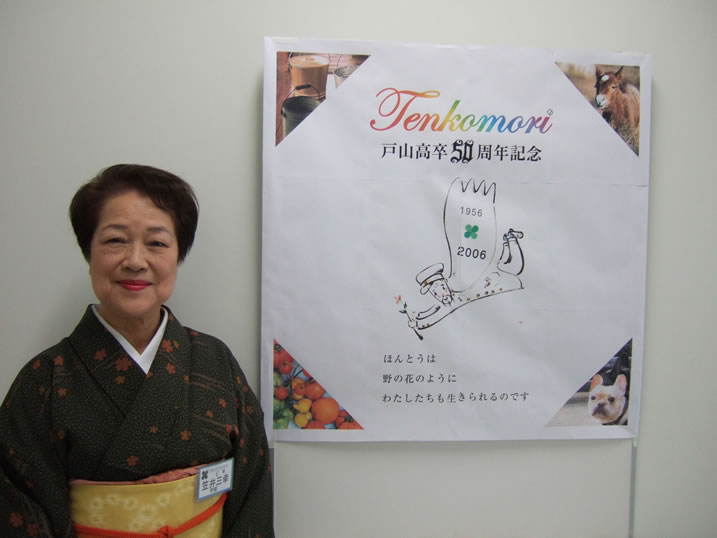 Tenkomori
戸山高卒50周年記念
1956
2006
ほんとうは
野の花のように
わたしたちも生きられるのです
笠井三幸